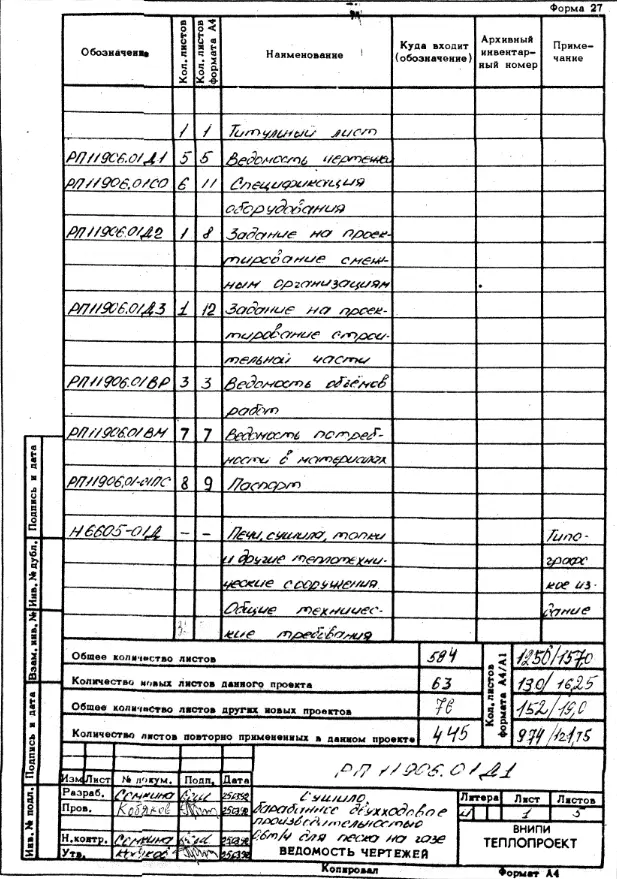 Форма 27
Обозначение Кол. листов Кол. листов формата А4 Наименование Куда входит (обозначение) Архивный инвентарный номер Примечание
1 1 Титульный лист
РП11906.01Д1 5 5 Ведомость чертежей
РП11906.01СО 6 11 Спецификация
оборудования
РП11906.01Д2 1 8 Задание на проек-
тирование смеж-
ным организациям
РП11906.01Д3 1 12 Задание на проек-
тирование строи-
тельной части
РП11906.01ВР 3 3 Ведомость объёмов
работ
РП11906.01ВМ 7 7 Ведомость потреб-
ности в материалах
РП11906.01-01ПС 8 9 Паспорт
Н6605-01Д - - Печи, сушила, топки Типо-
и другие теплотехни- графс
ческие сооружения. кое из-
Общие техничес- дание
кие требования
Общее количество листов 584 1250/1570
Количество новых листов данного проекта 63 130/1625
Общее количество листов других новых проектов 76 152/19,0
Количество листов повторно примененных в данном проекте 445 974/12175
Кол. листов формата А4/А1
РП 11906.01Д1
Изм Лист № докум. Подп. Дата
Разраб. Семкина
Пров.
Н.контр. Семкина
Утв.
Сушило
барабанное двухходовое
производительностью
6,6т/ч для песка на газе
ВЕДОМОСТЬ ЧЕРТЕЖЕЙ
Литера Лист Листов
1 5
ВНИПИ
ТЕПЛОПРОЕКТ
Копировал Формат А4
Подпись и дата
Инв. № дубл.
Взам. инв. №
Подпись и дата
Инв. № подл.